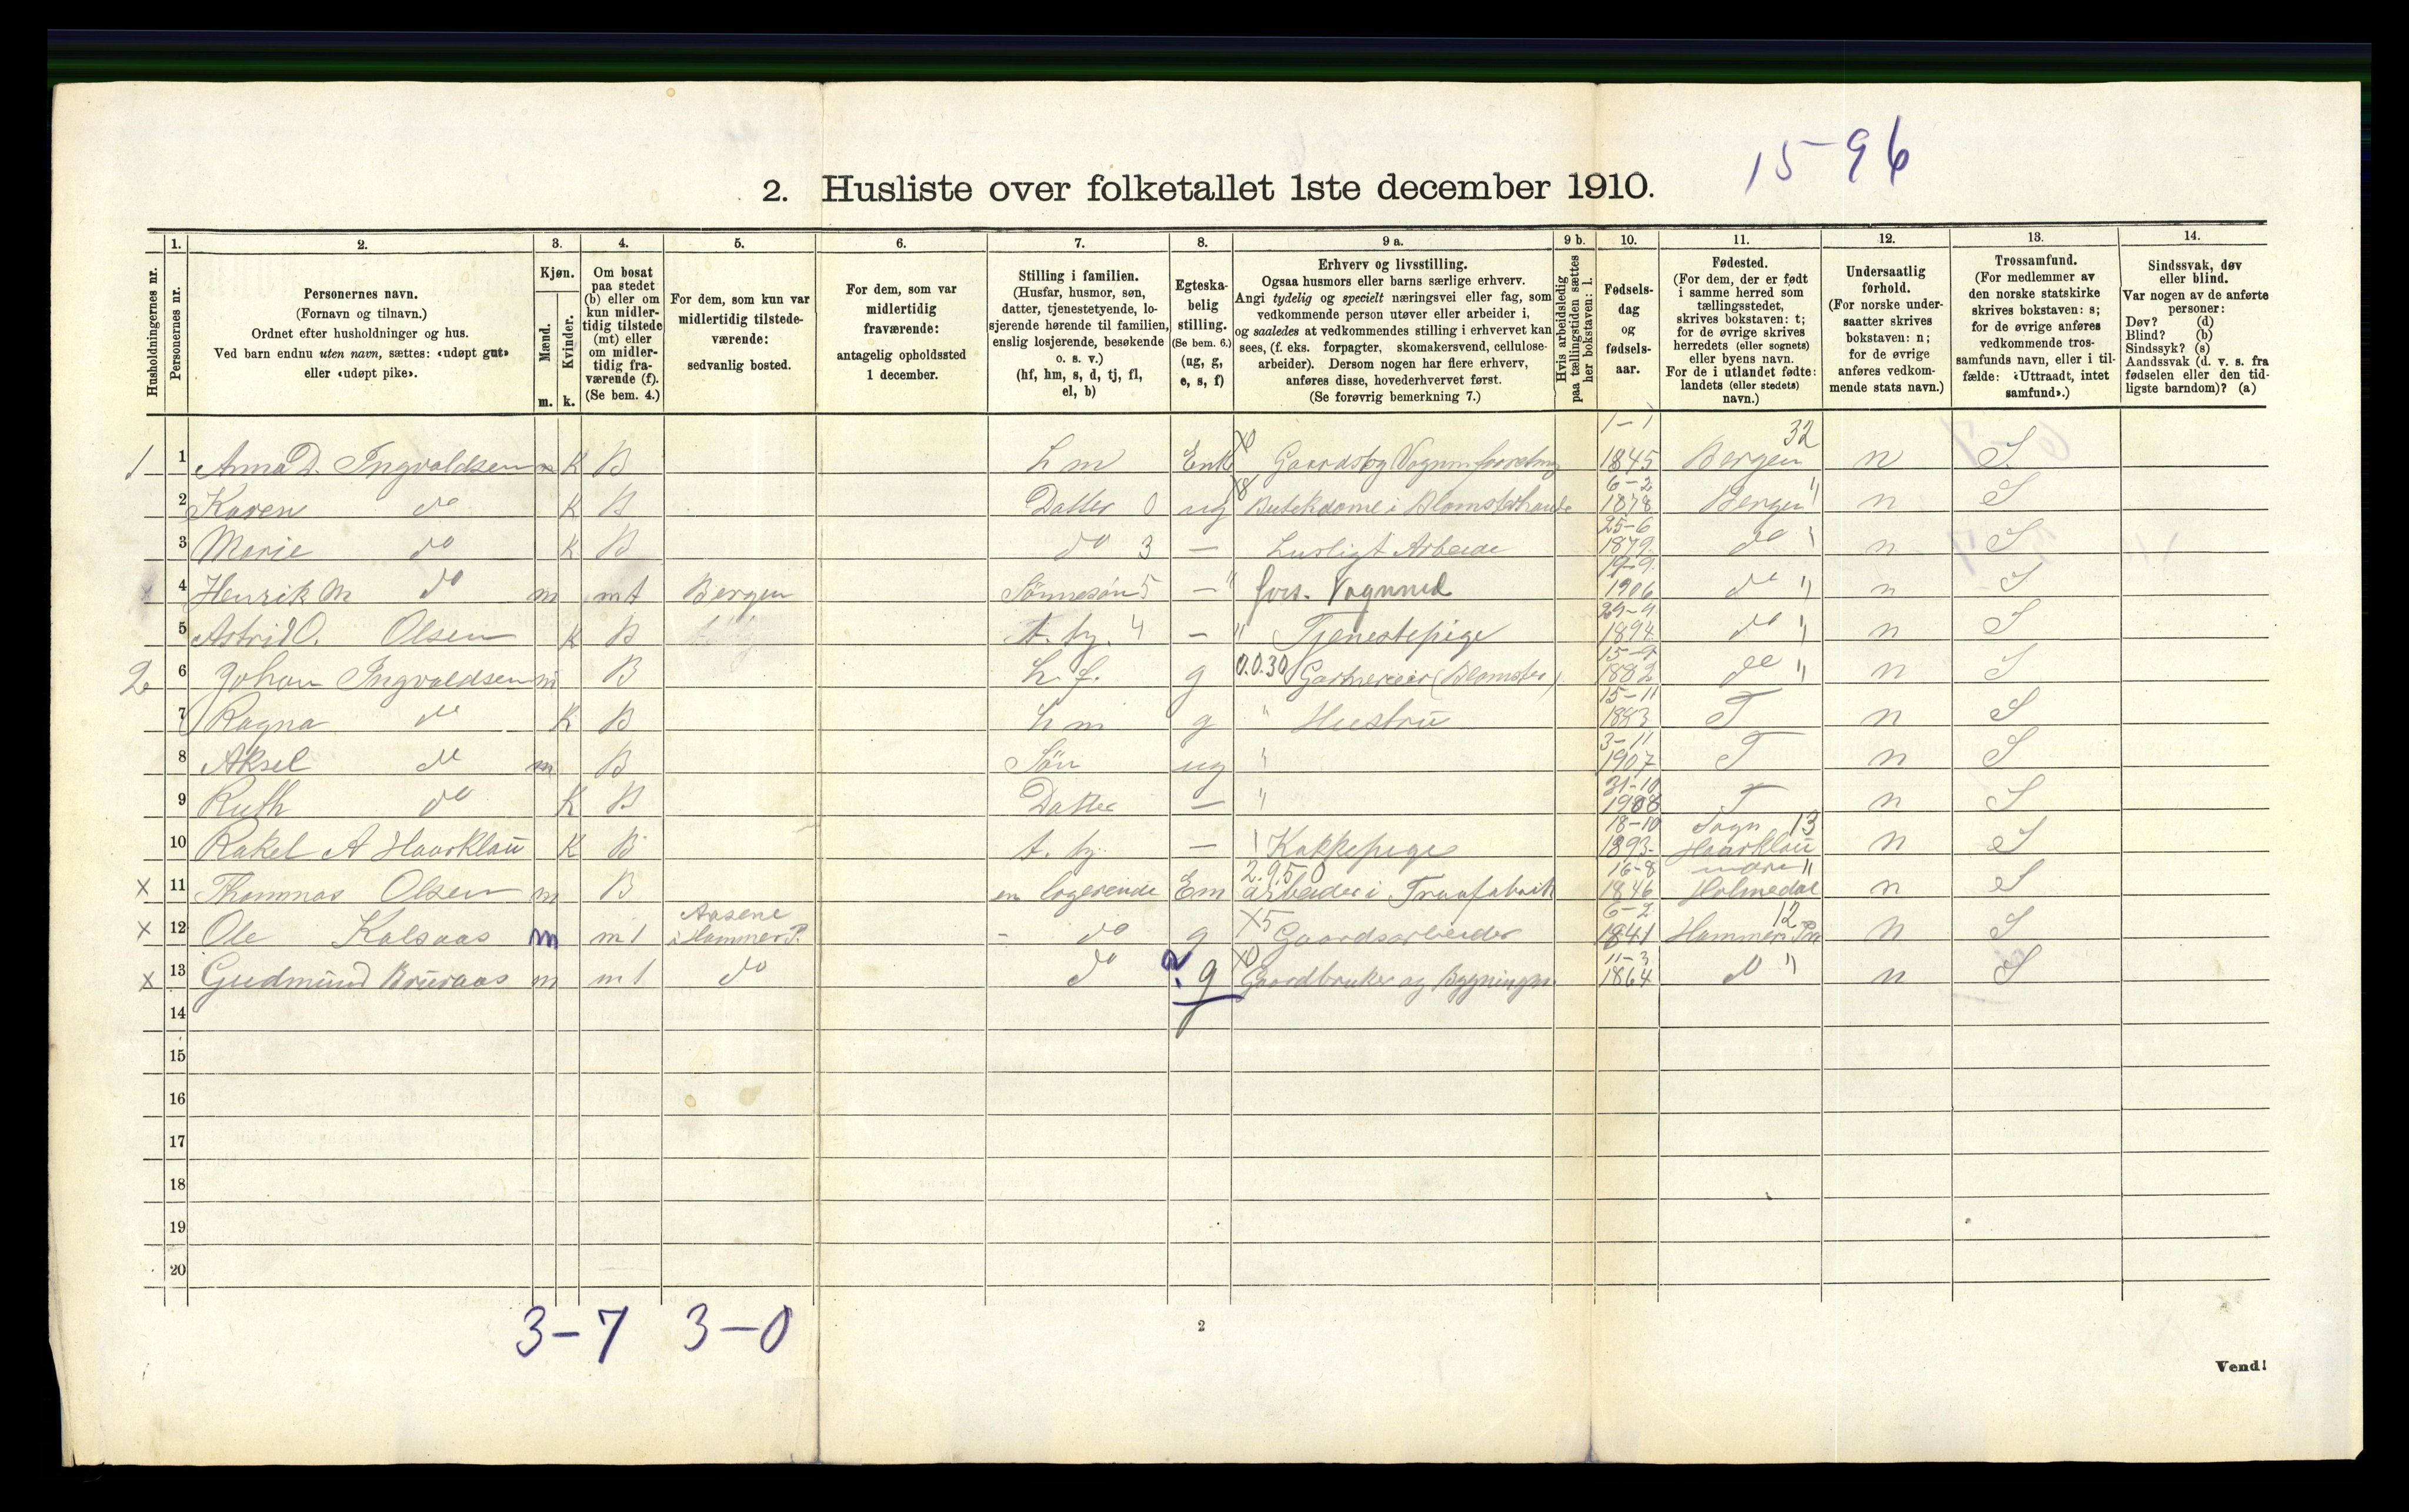 15-96
2. Husliste over folketallet 1ste december 1910.
Husholdningernes nr.
1. Personernes nr.
2. Personernes navn. (Fornavn og tilnavn.) Ordnet efter husholdninger og hus. Ved barn endnu uten navn, sættes: «udøpt gut» eller «udøpt pike».
3. Kjøn. Mænd. m. Kvinder. k.
4. Om bosat paa stedet (b) eller om kun midler-tidig tilstede (mt) eller om midler-tidig fra-værende (f). (Se bem. 4.)
5. For dem, som kun var midlertidig tilstede-værende: sedvanlig bosted.
6. For dem, som var midlertidig fraværende: antagelig opholdssted 1 december.
7. Stilling i familien. (Husfar, husmor, søn, datter, tjenestetyende, lo-sjerende hørende til familien, enslig losjerende, besøkende o. s. v.) (hf, hm, s, d, tj, fl, el, b)
8. Egteska-belig stilling. (Se bem. 6.) (ug, g, e, s, f)
9 a. Erhverv og livsstilling. Ogsaa husmors eller barns særlige erhverv. Angi tydelig og specielt næringsvei eller fag, som vedkommende person utøver eller arbeider i, og saaledes at vedkommendes stilling i erhvervet kan sees, (f. eks. forpagter, skomakersvend, cellulose-arbeider). Dersom nogen har flere erhverv, anføres disse, hovederhvervet først. (Se forøvrig bemerkning 7.)
9 b. Hvis arbeidsledig paa tællingstiden sættes her bokstaven: l.
10. Fødsels-dag og fødsels-aar.
11. Fødested. (For dem, der er født i samme herred som tællingsstedet, skrives bokstaven: t; for de øvrige skrives herredets (eller sognets) eller byens navn. For de i utlandet fødte: landets (eller stedets) navn.)
12. Undersaatlig forhold. (For norske under-saatter skrives bokstaven: n; for de øvrige anføres vedkom-mende stats navn.)
13. Trossamfund. (For medlemmer av den norske statskirke skrives bokstaven: s; for de øvrige anføres vedkommende tros-samfunds navn, eller i til-fælde: «Uttraadt, intet samfund».)
14. Sindssvak, døv eller blind. Var nogen av de anførte personer: Døv? (d) Blind? (b) Sindssyk? (s) Aandssvak (d. v. s. fra fødselen eller den tid-ligste barndom)? (a)
1 1 Anna D. Ingvaldsen K B h m Enke Gaardsog 1-1 1845 Bergen 32 n S
2 Karen do K B Datter 0 ug Butekdame i 6-2 1878 Bergen " n S
3 Marie do K B do 3 — Husligt Arbeide 25-6 1879 do " n S
4 Henrik M do m mt Bergen Sønnesøn 5 — " fors. 19-9 1906 do " n S
5 Astrid O. Olsen K B t. ty. 4 — " Tjenestepige 1894 do " n S
2 6 Johan Ingvaldsen m B h. f. g 0.0.30 Gartnereier (Blomster) 1882 do " n S
7 Ragna do K B h m g " Hustru 15-11 1883 T n S
8 Aksel do m B Søn ug " 3-11 1907 T n S
9 Ruth do K B Datter — " 31-10 1908 T n S
10 Rakel A Haarklau K B t. ty. — Kokkepige 18-10 1893 Sogn 13 Haarklau n S
x 11 Thommas Olsen m B en logerende Em 2.950 arbeider i Traafabrik 16-8 1846 Holmedal n S
x 12 Ole Kalsaas m mt Aasene i Hammer P. - do g X5 Gaardsarbeider 6-2 1841 Hammer P 12 n S
x 13 Gudmund Bruraas m mt do do ? g X0 Gaardbruker og 11-3 1864 do " n S
14
15
16
17
18
19
20
3-7 3-0
2
Vend!